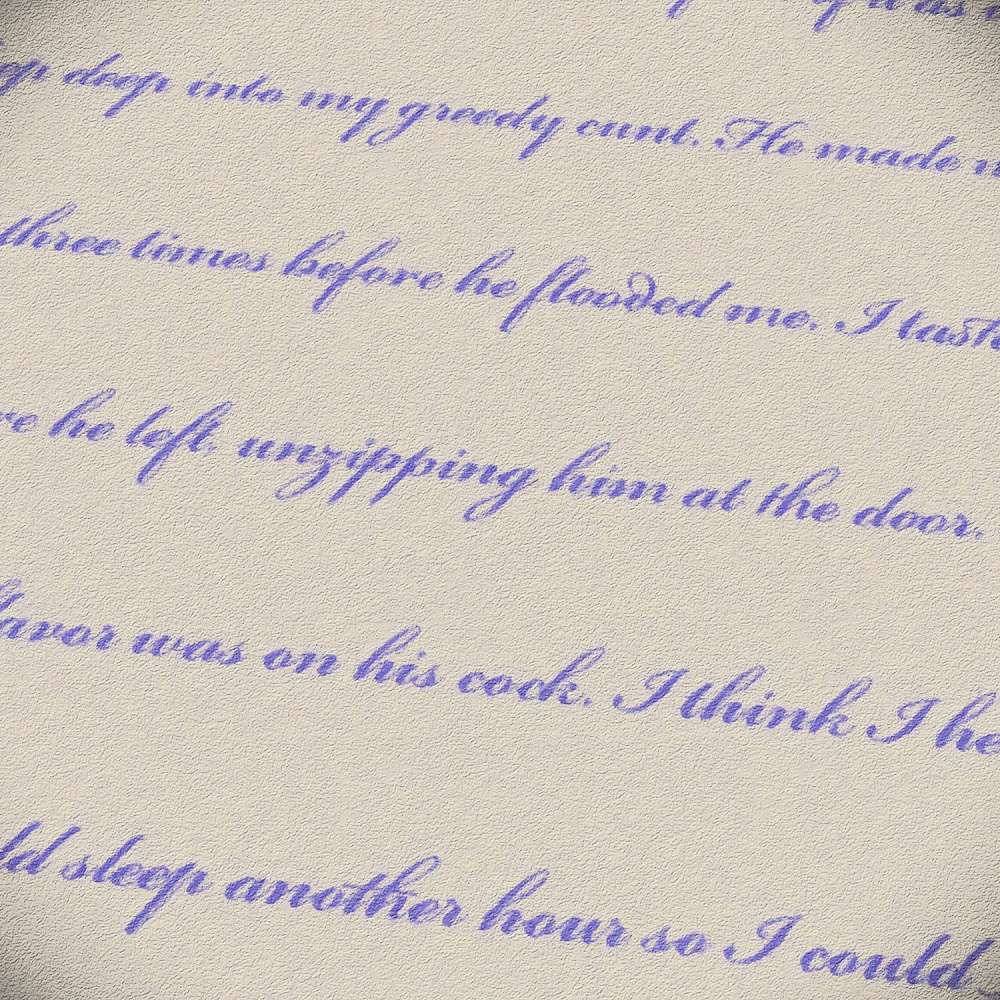 as
deep into my greedy cunt. He made
three times before he flooded me. I
he left, unzipping him at the door.
was on his cock. I think I
sleep another hour so I could